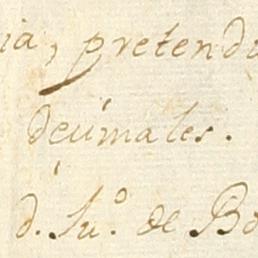 ia, pretendi
decimales.
d. Ju.º de Bo